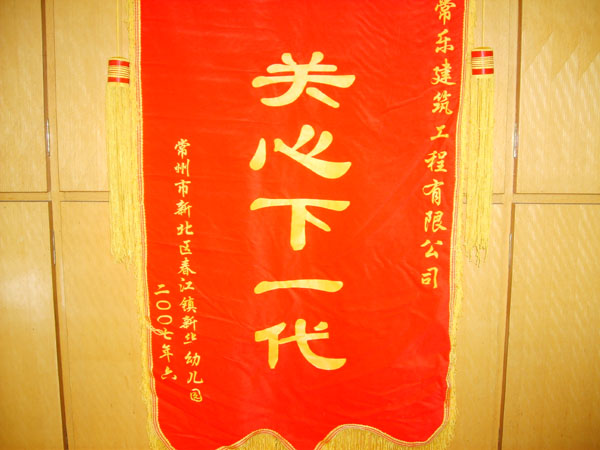 常乐建筑工程有限公司
关心下一代
常州市新北区春江镇新华幼儿园
二〇〇七年六